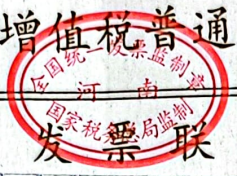 增值税普通
全国统一发票监制章
河南
国家税务总局监制
发票联